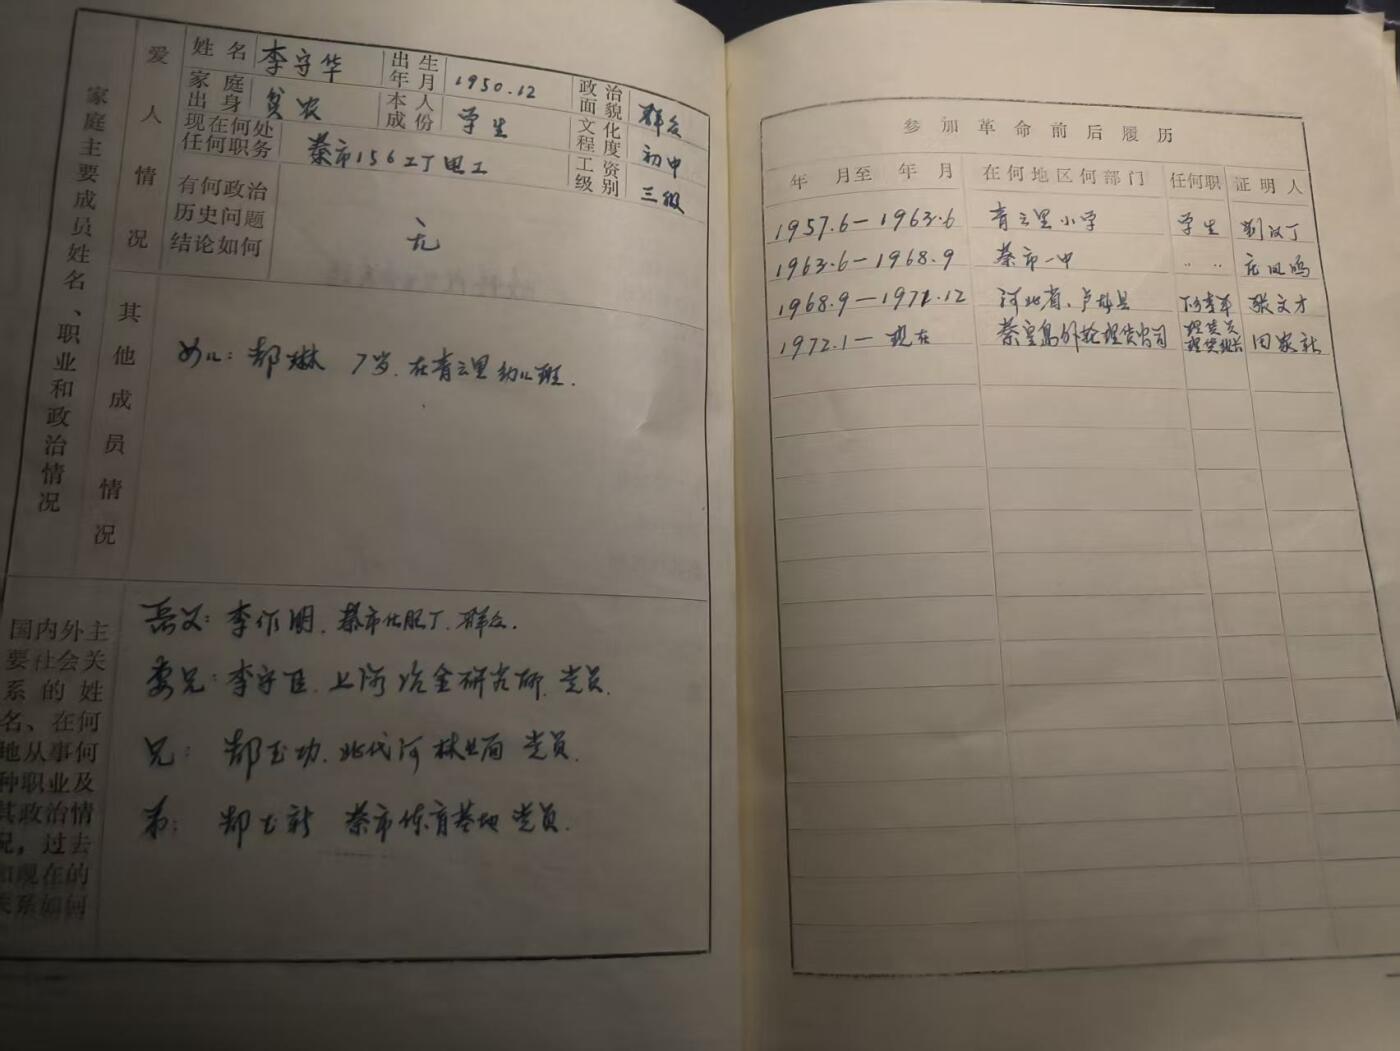 家庭主要成员姓名、职业和政治情况
爱人情况
姓名 李守华 出生年月 1950.12 政治面貌 群众
家庭出身 贫农 本人成份 学生 文化程度 初中
现在何处任何职务 秦市156工厂电工 工资级别 三级
有何政治历史问题结论如何 无
其他成员情况
女儿：郝琳 7岁.在青云里幼儿班.
国内外主要社会关系的姓名、在何地从事何种职业及其政治情况，过去和现在的关系如何
岳父：李作明.秦市化肥厂.群众.
妻兄：李守臣.上海冶金研究所.党员.
兄：郝玉功.北代河林业局 党员.
弟：郝玉新 秦市体育基地 党员.
参加革命前后履历
年 月至 年 月 在何地区何部门 任何职 证明人
1957.6—1963.6 青云里小学 学生 刘汉丁
1963.6—1968.9 秦市一中 〃 〃 凤鸣
1968.9—1971.12 河北省.卢龙县 下乡青年 张文才
1972.1—现在 秦皇岛外轮理货公司 理货员 理货组长 田家新